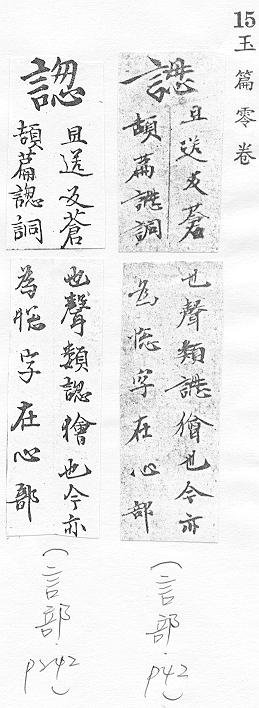 15玉篇零卷
謥
且送反蒼
頡篇謥詷
也聲類謥獪也今亦
為憁字在心部
(言部·P42)
謥
且送反蒼
頡篇謥詷
也聲類謥獪也今亦
為憁字在心部
(言部·P242)